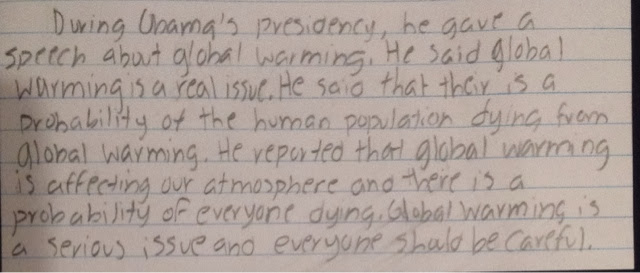 During Obama's presidency, he gave a
speech about global warming. He said global
warming is a real issue. He said that their is a
probability of the human population dying from
global warming. He reported that global warming
is affecting our atmosphere and there is a
probability of everyone dying. Global warming is
a serious issue and everyone should be careful.